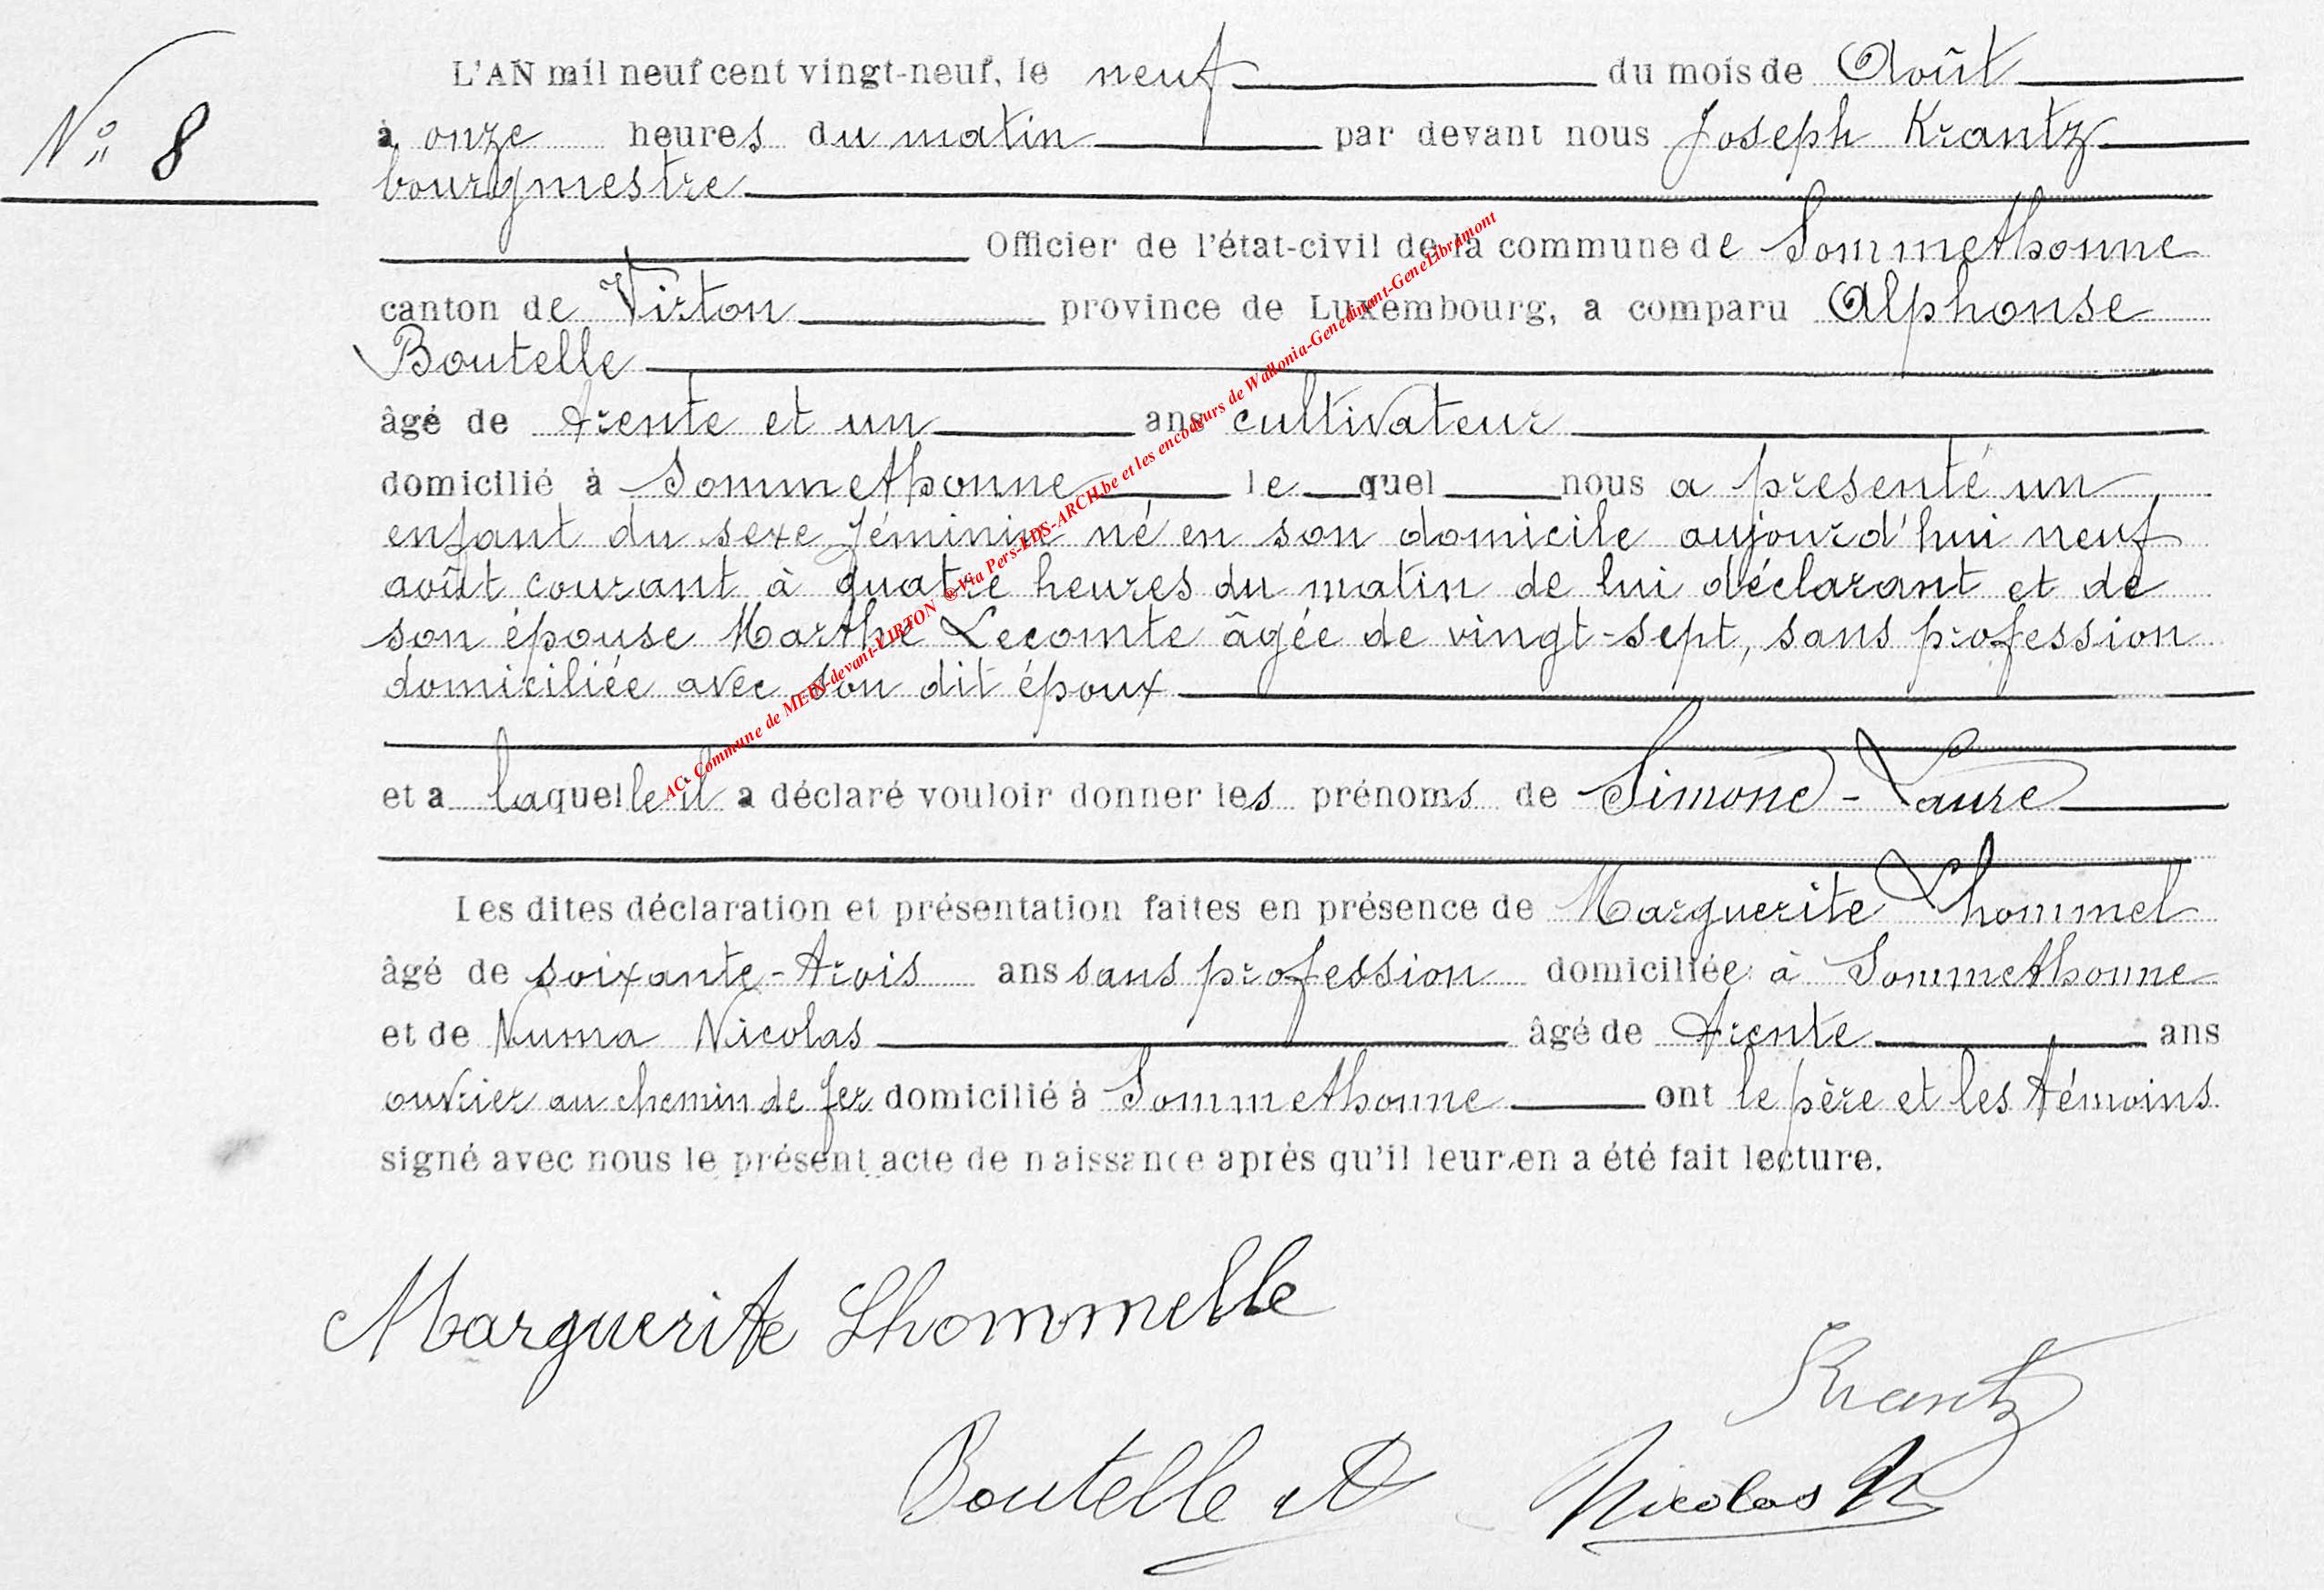 N° 8
L'AN mil neuf cent vingt-neuf, le neuf du mois de Août
à onze heures du matin par devant nous Joseph Krantz
bourgmestre
Officier de l'état-civil de la commune de Sommethonne
canton de Virton province de Luxembourg, a comparu Alphonse
Boutelle
âgé de trente et un ans cultivateur
domicilié à Sommethonne le quel nous a présenté un
enfant du sexe féminin né en son domicile aujourd'hui neuf
août courant à quatre heures du matin de lui déclarant et de
son épouse Marthe Lecomte âgée de vingt-sept, sans profession
domiciliée avec son dit époux
et a laquelle il a déclaré vouloir donner les prénoms de Simone-Laure
Les dites déclaration et présentation faites en présence de Marguerite Lhommel
âgé de soixante-trois ans sans profession domiciliée à Sommethonne
et de Numa Nicolas âgé de trente ans
ouvrier au chemin de fer domicilié à Sommethonne ont le père et les témoins
signé avec nous le présent acte de naissance après qu'il leur en a été fait lecture.
Marguerite Lhommelle
Krantz
Boutelle A
Nicolas N
AC. Commune de MEIX-devant-VIRTON @ Via Pers-LDS-ARCH.be et les encodeurs de Wallonia-Genedinant-GeneLibramont